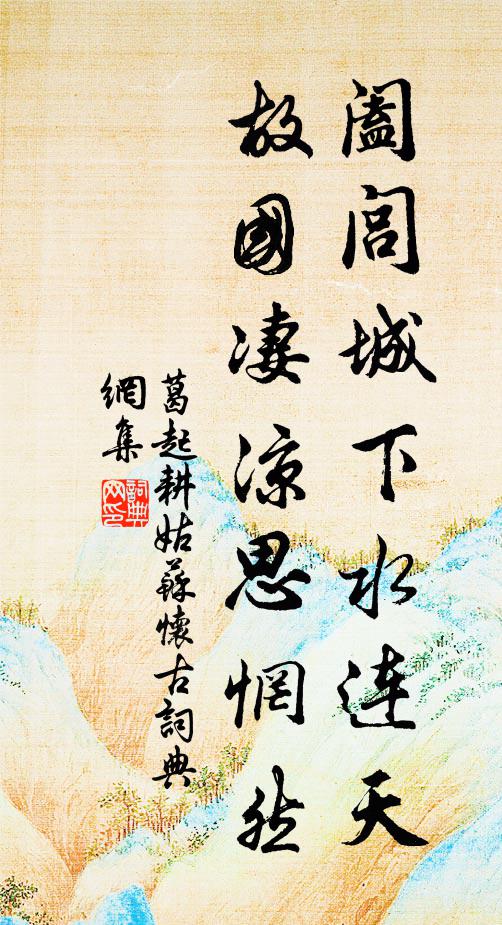 阖闾城下水连天
故國凄涼思惘然
葛起耕姑蘇懷古詞典
網集
詞典
网印